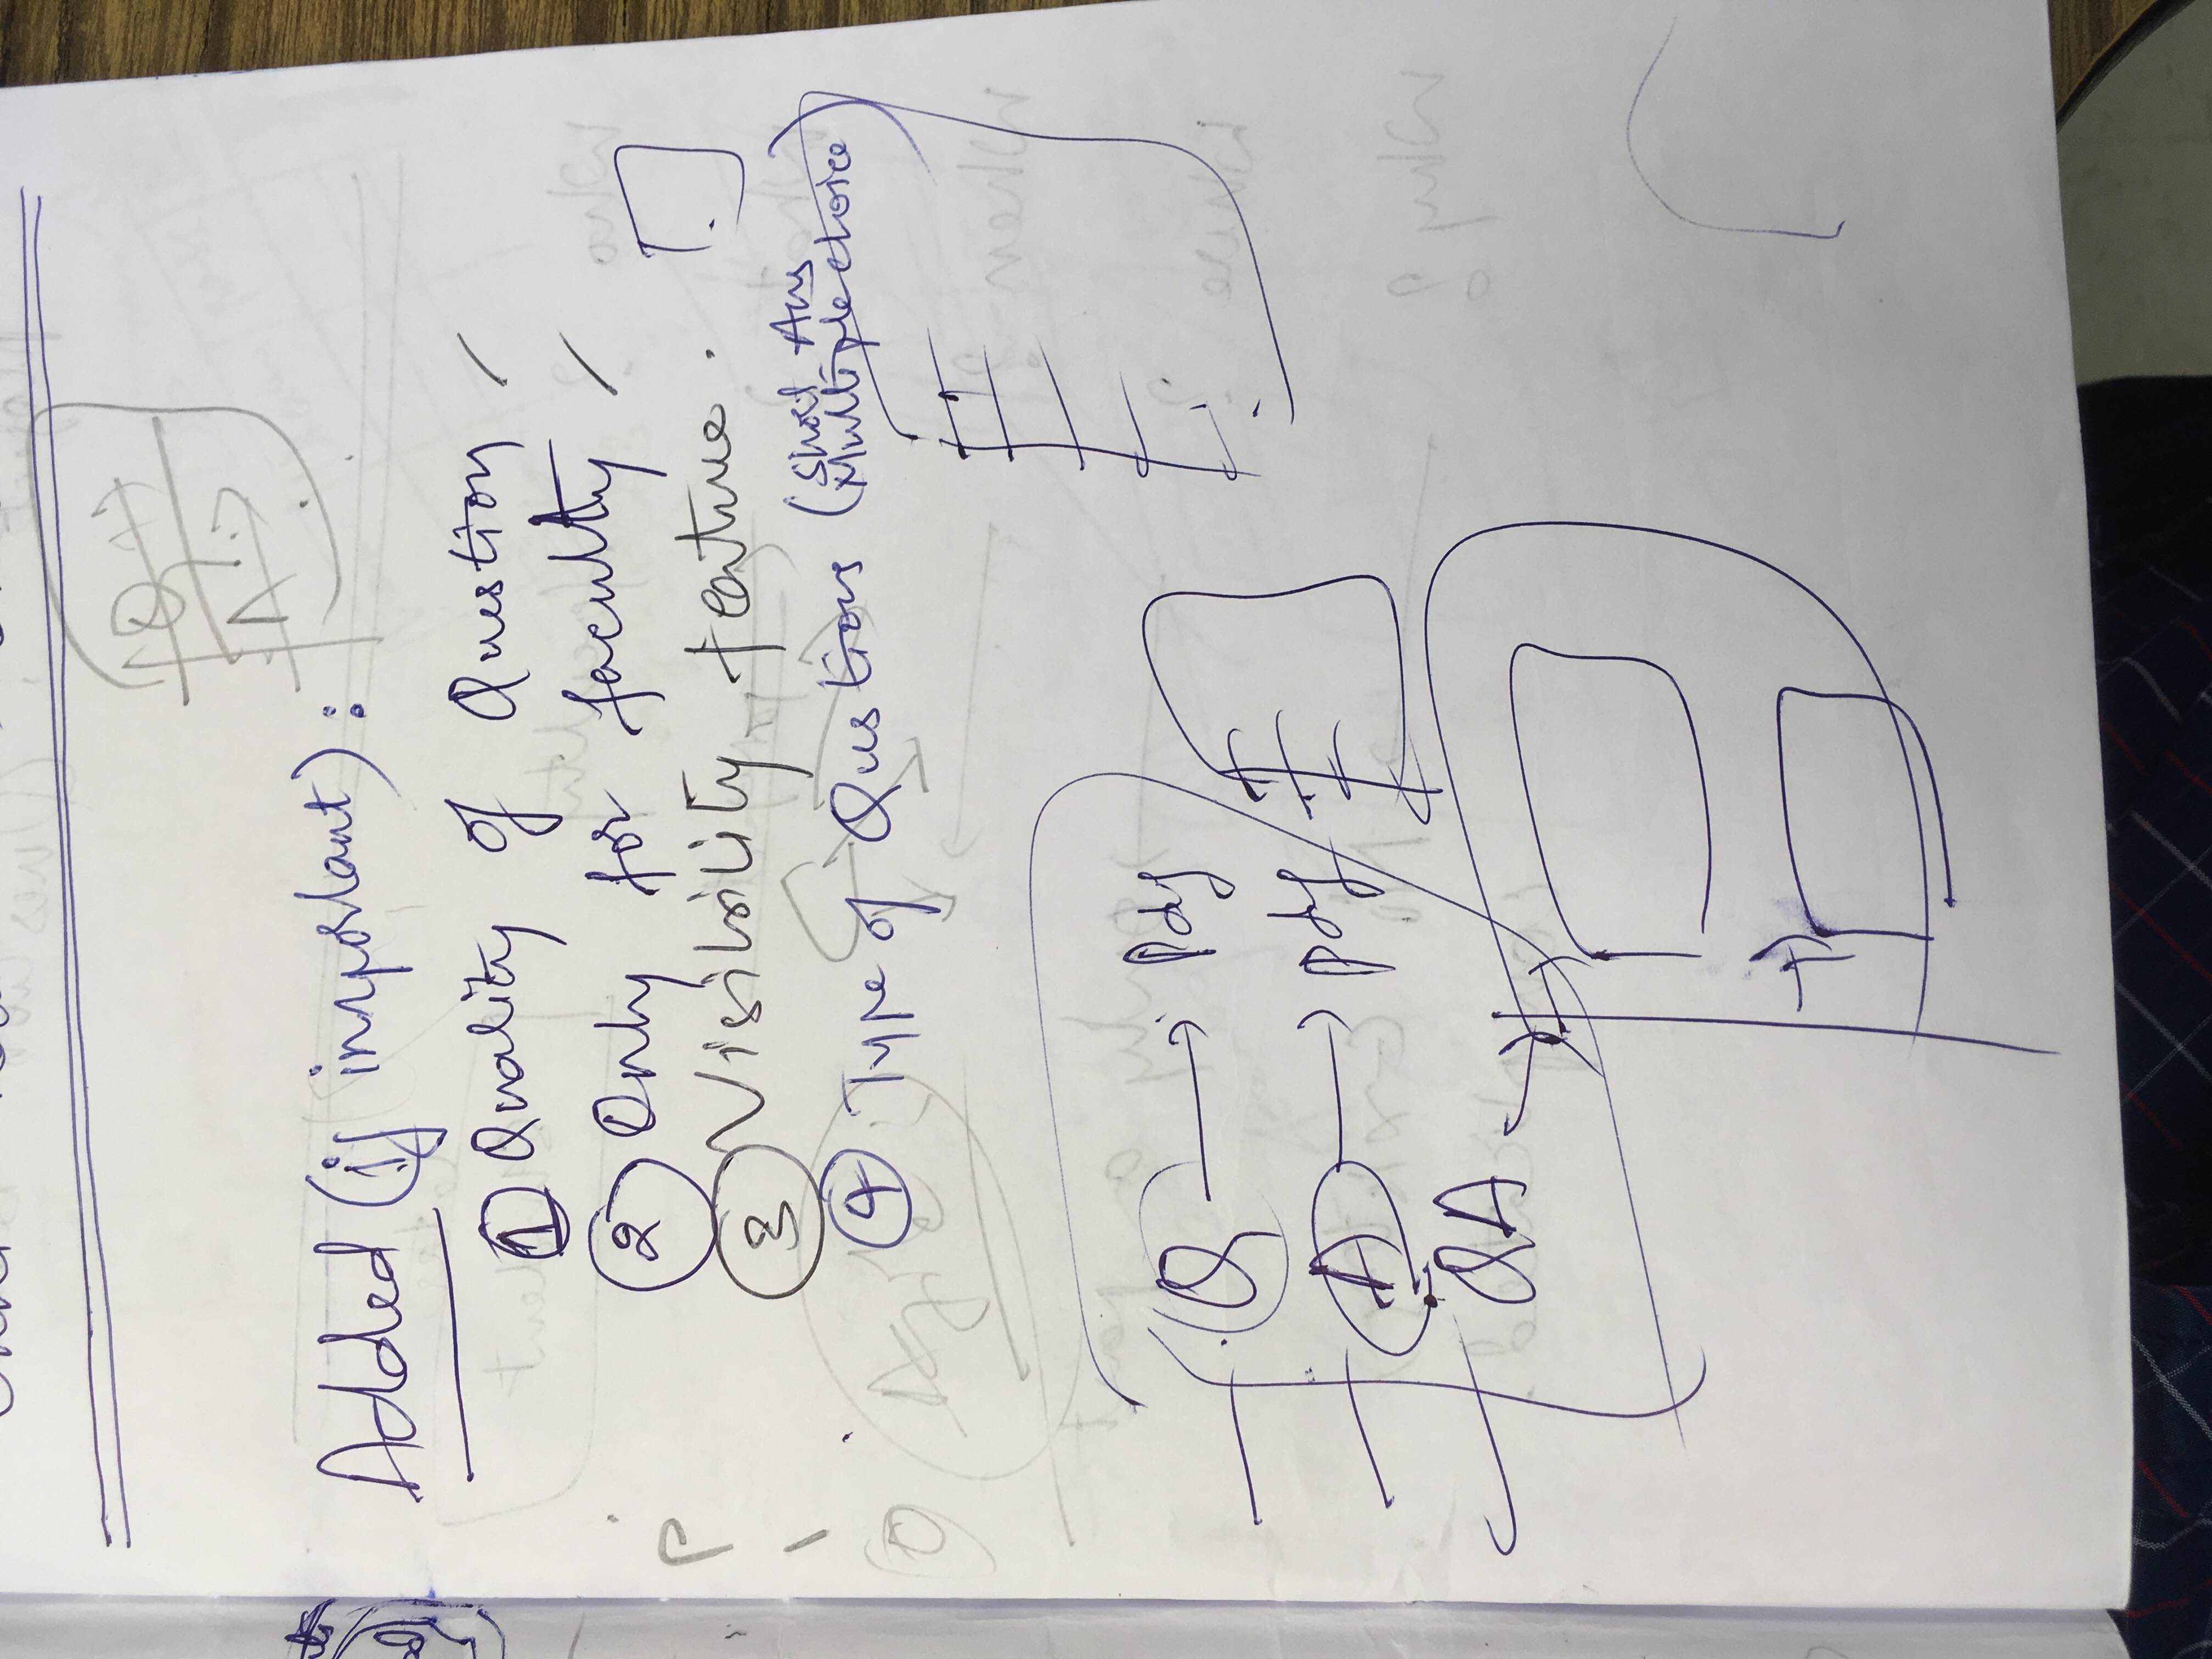 Added (if important) :
① Quality of Question
② Only for faculty
③ Visibility feature.
④ Type of Qustions (Short Ans
Multiple choice)
Q → Pdf
A → Pdf
QA